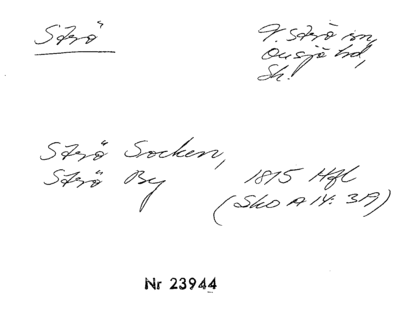 Strö
V. Strö sn,
Onsjö hd,
Sk.
Strö Socken,
Strö By 1815 Hfl
(Sko A 14: 3A)
Nr 23944